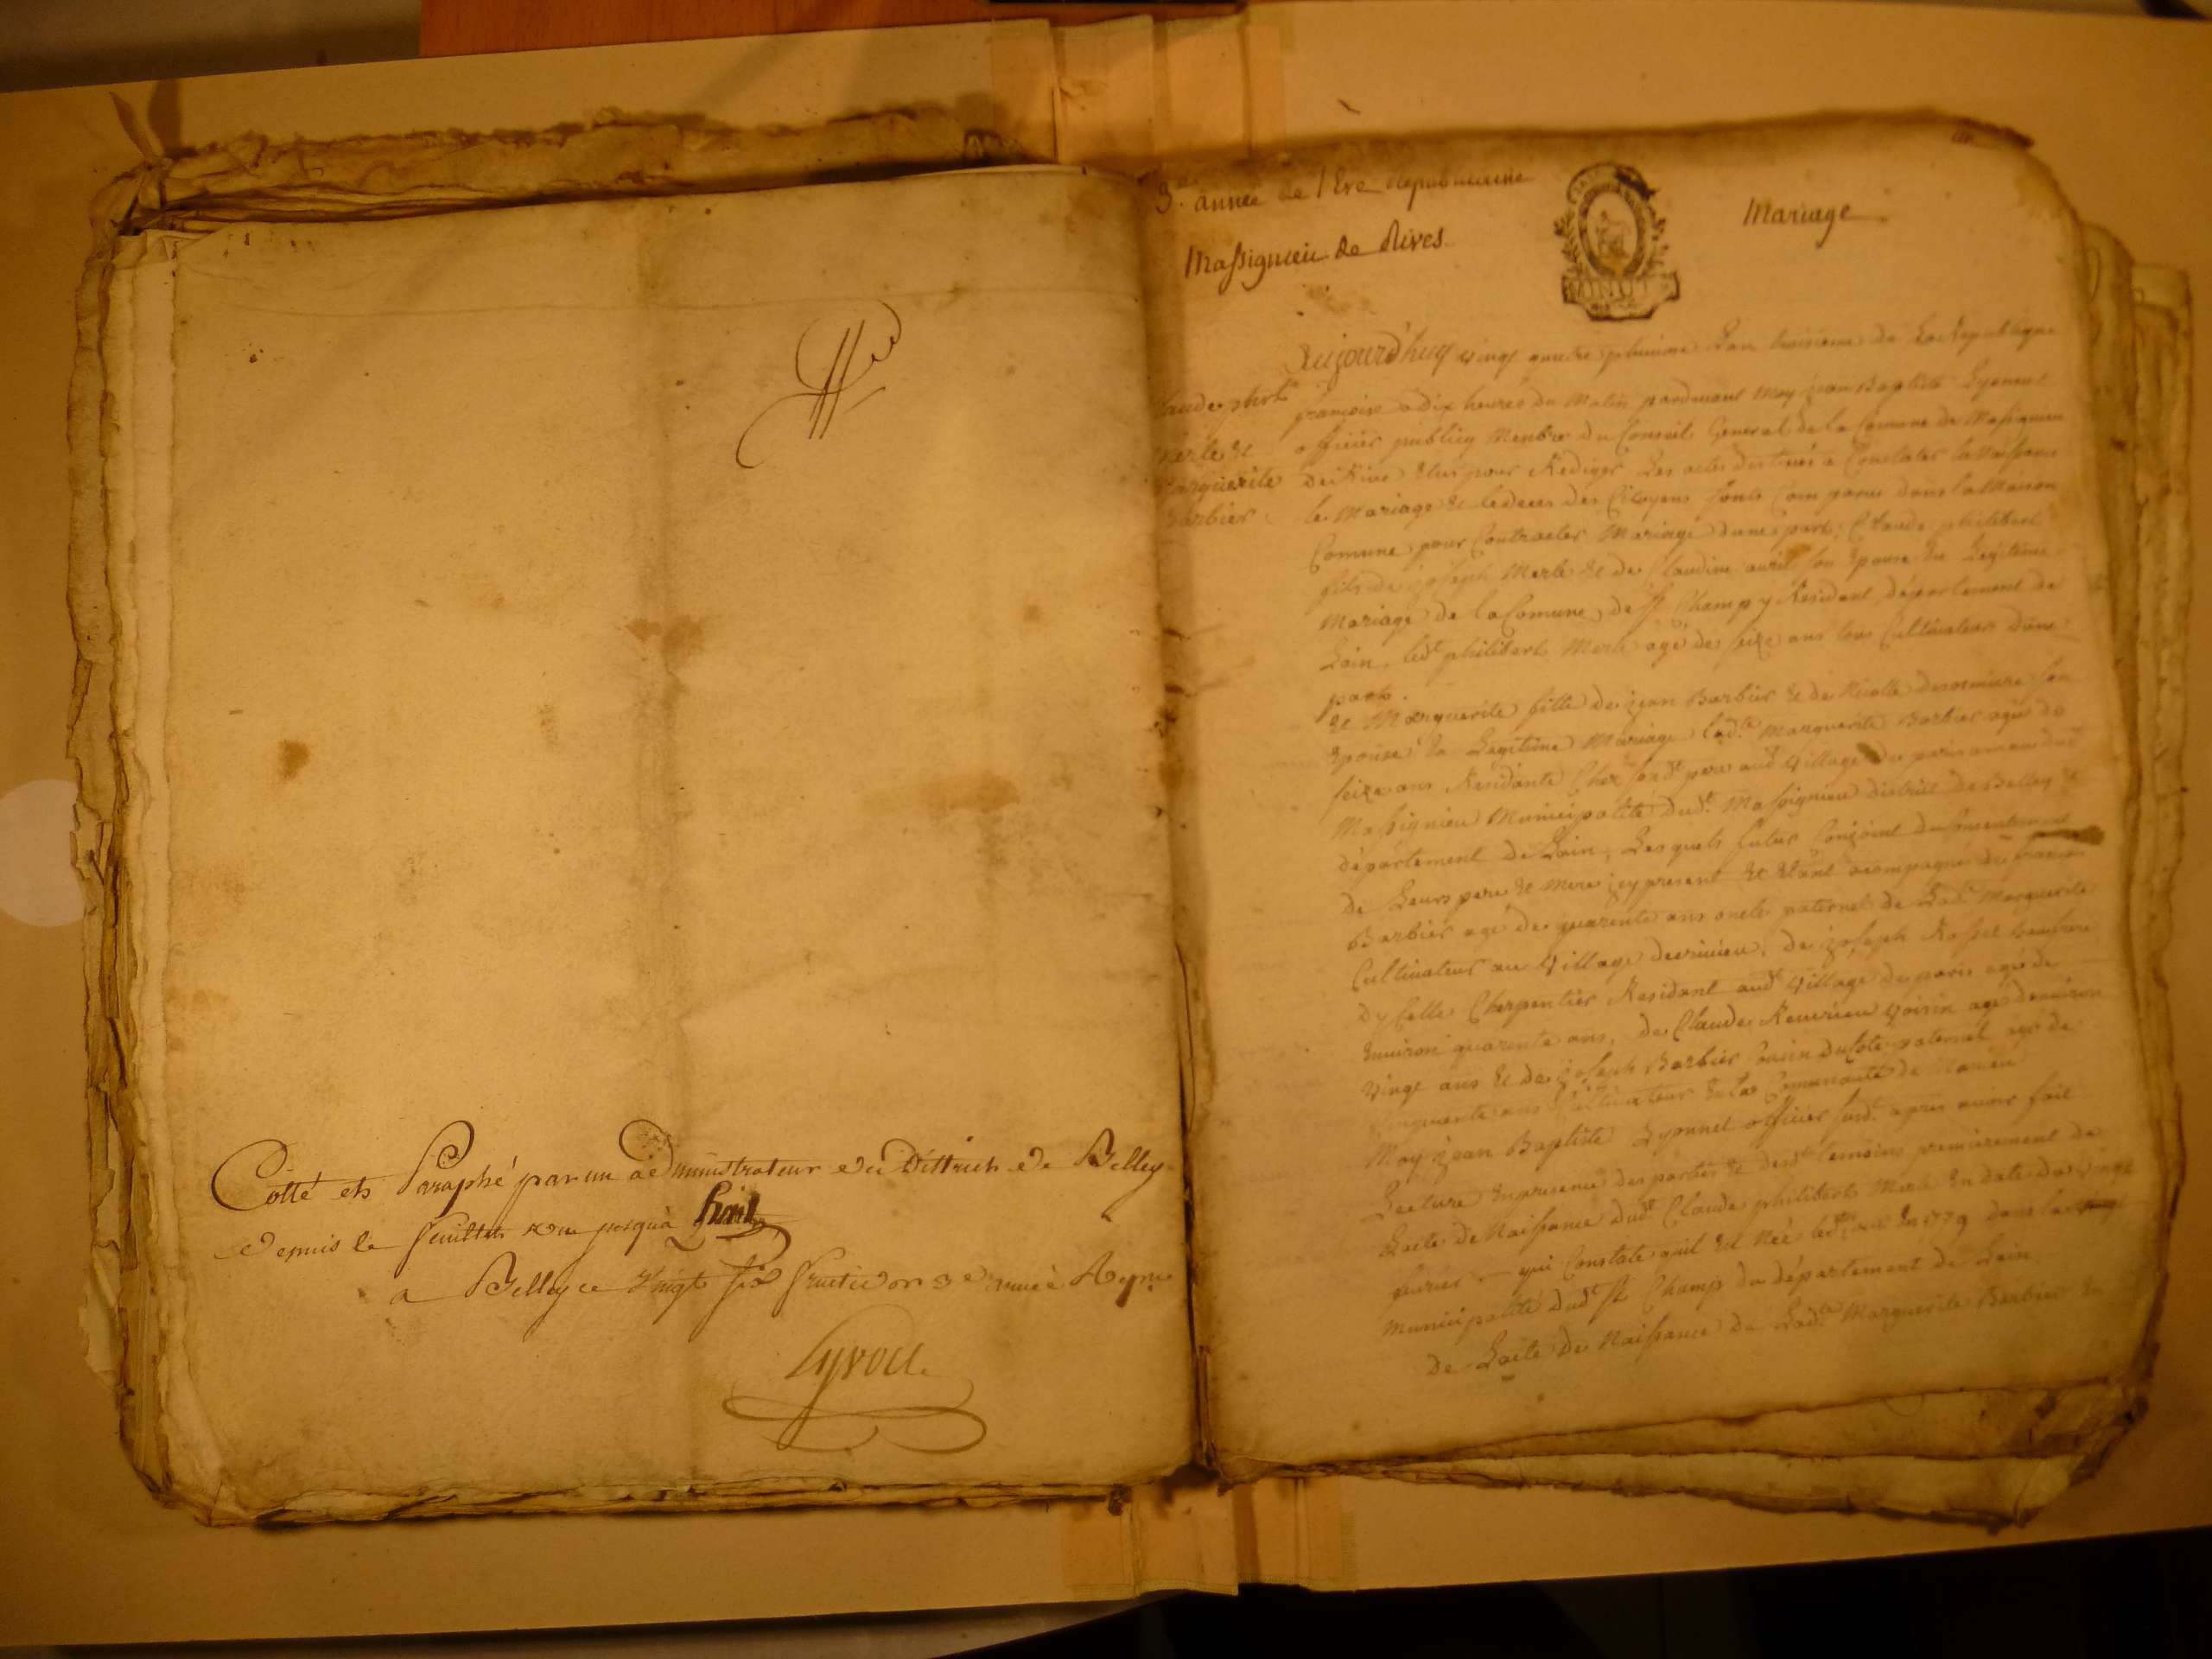 Cotté et Paraphé par un administrateur du District de Belley
depuis le feuillet un jusqu'à huit
a Belley ce vingt six fructidor 3e année Repne
3e année de l'Ere Republicaine
Massignieu de Rives
Mariage
MINUTE
Claude phibt
Merle et
Marguerite
Barbier
Aujourd'huy vingt quatre pluviose L'an troisieme de La Republique
francoise a dix heures du Matin pardevant Moy jean Baptiste Lyonnet
officier publicq Menbre du Conseil General de la Comune de Massignieu
de Rive Elus pour Rediger Les actes destinés a Constater la Naissance
le Mariage et le deces des Citoyens sonts Comparus dans la Maison
Comune pour Contracter Mariage dune part, Claude philibert
fils de joseph Merle et de Claudine son Epouse En Legitime
Mariage de la Comune de St Champ y Residant, département de
Lain, ledt philibert Merle agé de seize ans tous Cultivateur dune
part.
et Marguerite fille de jean Barbier et de Nicolle son
Epouse En Legitime Mariage ladte Marguerite Barbier agée de
seize ans Residante Chez sondt pere audt village du
Massignieu Municipalité dudt Massignieu district de Belley et
département de Lain, Lesquels futur Conjoint du Consentement
de Leurs pere et Mere icy present et Etant acompagné de francois
Barbier agé de quarente ans oncle paternel de Ladte Marguerite
Cultivateur au village de joseph Rosset beaufrere
dycelle Cherpentier Residant audt village de agé de
Environ quarente ans, de Claude voisin agé denviron
vingt ans et de joseph Barbier Cousin du Coté paternel agé de
Cinquante ans Cultivateur En la Comunauté de
Moy jean Baptiste Lyonnet officier susdt apres avoir fait
Lecture En presence des parties et desdt temoins premierement de
Lacte de Naissance dudt Claude philibert Merle En date du vingt
fevrier qui Constate quil Est Né ledt jour En 1779 dans la
Municipalité dudt St Champ du département de Lain
de Lacte de Naissance de Ladte Marguerite Barbier En